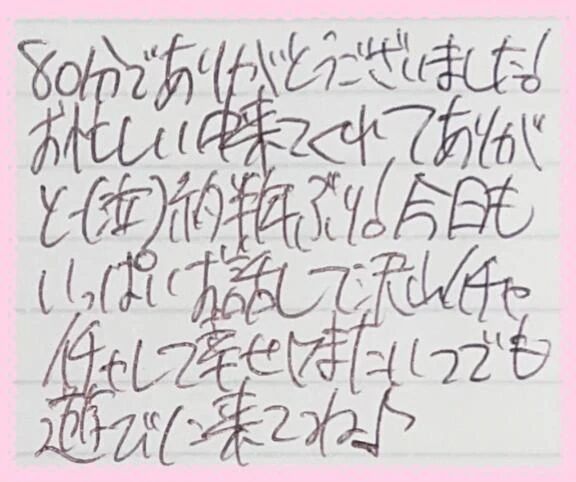 80分でありがとうございました!
お忙しい中来てくれてありが
と〜(泣)約半年ぶり!今日も
いっぱいお話して沢山イチャ
イチャして幸せ またいつでも
遊びに来てね♪